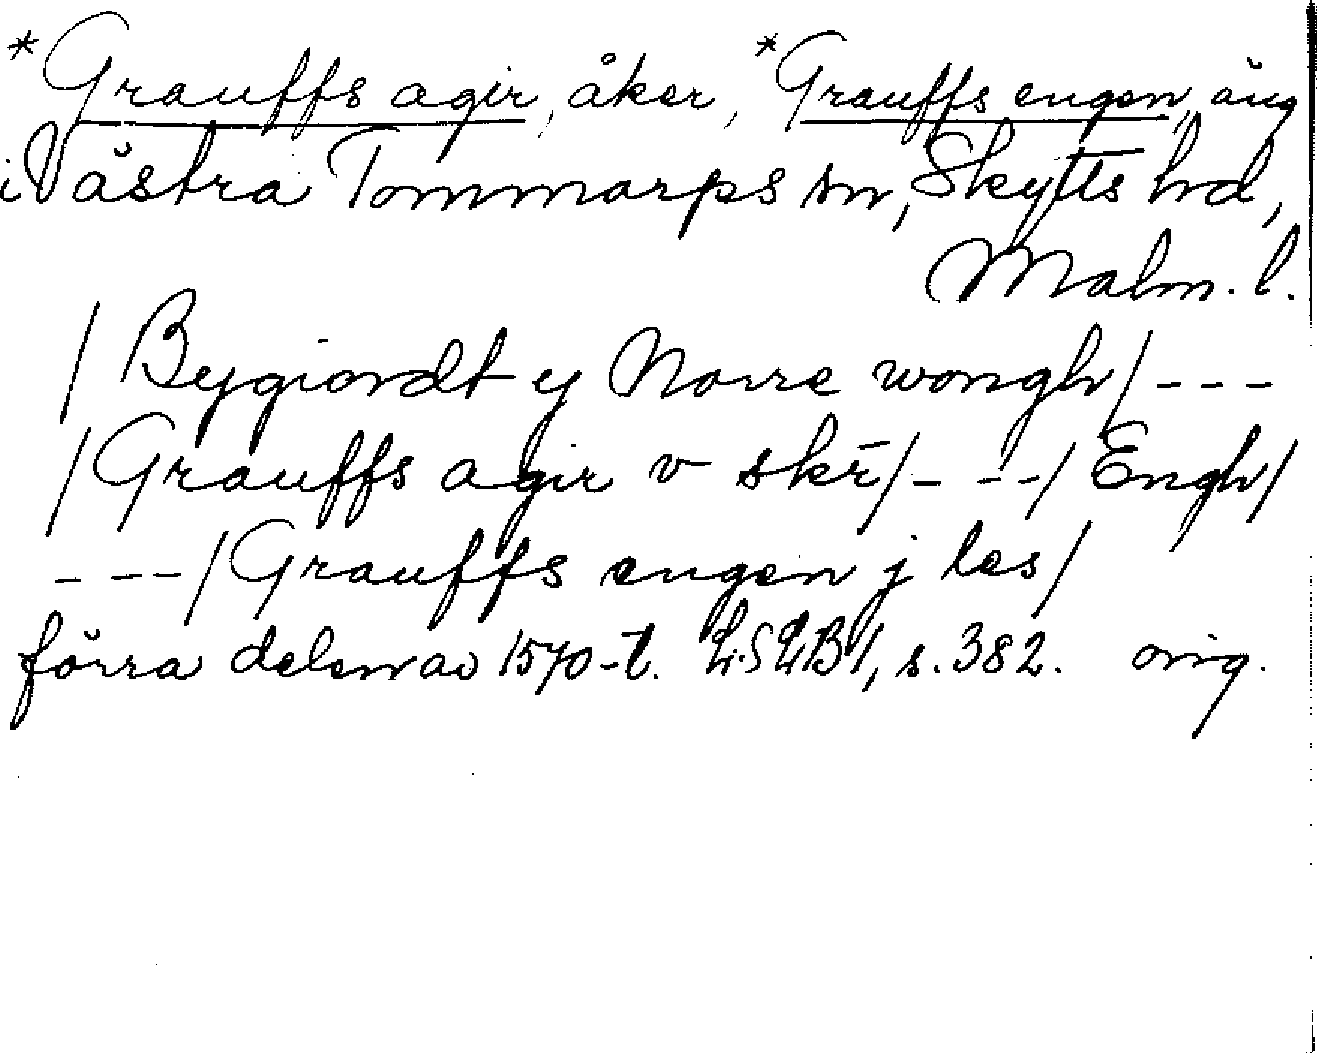 *Grauffs agir, åker, *Grauffs engen, äng
i Västra Tommarps sn, Skytts hd,
Malm. l.
/Bygiordt y Norre wongh/---
/Grauffs agir v skr̄/---/Engh/
---/Grauffs engen j les/
förra delen av 1570-t. LSLB I, s. 382. orig.